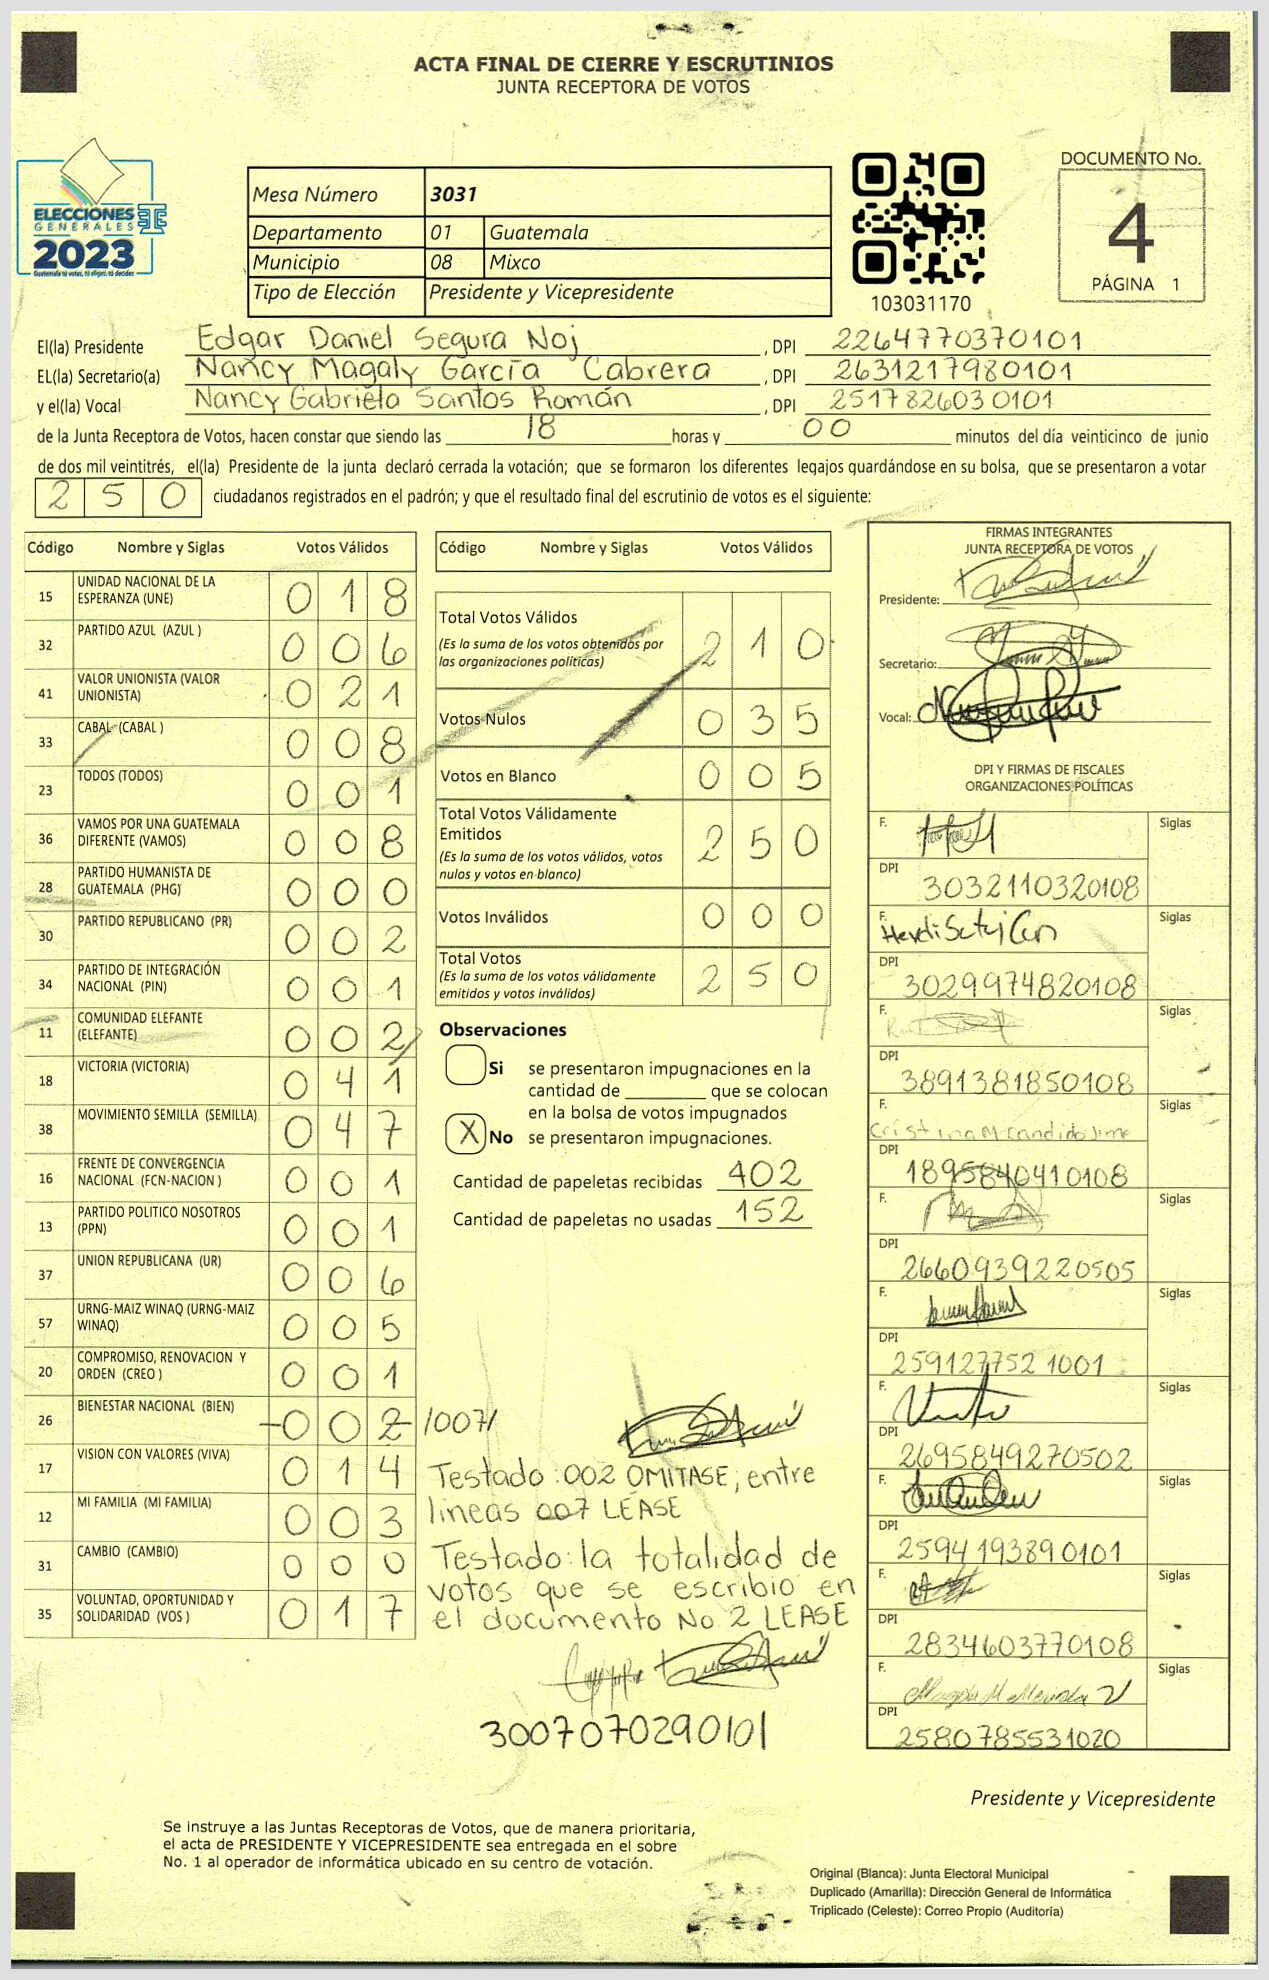 ACTA FINAL DE CIERRE Y ESCRUTINIOS
JUNTA RECEPTORA DE VOTOS
ELECCIONES
GENERALES
2023
Guatemala tú votas, tú eliges, tú decides
Mesa Número 3031
Departamento 01 Guatemala
Municipio 08 Mixco
Tipo de Elección Presidente y Vicepresidente
103031170
DOCUMENTO No.
4
PÁGINA 1
El(la) Presidente Edgar Daniel Segura Noj, DPI 2264770370101
EL(la) Secretario(a) Nancy Magaly García Cabrera, DPI 2631217980101
y el(la) Vocal Nancy Gabriela Santos Román, DPI 2517826030101
de la Junta Receptora de Votos, hacen constar que siendo las 18 horas y 00 minutos del día veinticinco de junio
de dos mil veintitrés, el(la) Presidente de la junta declaró cerrada la votación; que se formaron los diferentes legajos guardándose en su bolsa, que se presentaron a votar
250 ciudadanos registrados en el padrón; y que el resultado final del escrutinio de votos es el siguiente:
Código Nombre y Siglas Votos Válidos
15 UNIDAD NACIONAL DE LA ESPERANZA (UNE) 018
32 PARTIDO AZUL (AZUL ) 006
41 VALOR UNIONISTA (VALOR UNIONISTA) 021
33 CABAL (CABAL ) 008
23 TODOS (TODOS) 001
36 VAMOS POR UNA GUATEMALA DIFERENTE (VAMOS) 008
28 PARTIDO HUMANISTA DE GUATEMALA (PHG) 000
30 PARTIDO REPUBLICANO (PR) 002
34 PARTIDO DE INTEGRACIÓN NACIONAL (PIN) 001
11 COMUNIDAD ELEFANTE (ELEFANTE) 002
18 VICTORIA (VICTORIA) 041
38 MOVIMIENTO SEMILLA (SEMILLA) 047
16 FRENTE DE CONVERGENCIA NACIONAL (FCN-NACION ) 001
13 PARTIDO POLITICO NOSOTROS (PPN) 001
37 UNION REPUBLICANA (UR) 006
57 URNG-MAIZ WINAQ (URNG-MAIZ WINAQ) 005
20 COMPROMISO, RENOVACION Y ORDEN (CREO ) 001
26 BIENESTAR NACIONAL (BIEN) 002 /007/
17 VISION CON VALORES (VIVA) 014
12 MI FAMILIA (MI FAMILIA) 003
31 CAMBIO (CAMBIO) 000
35 VOLUNTAD, OPORTUNIDAD Y SOLIDARIDAD (VOS ) 017
Código Nombre y Siglas Votos Válidos
Total Votos Válidos 210
(Es la suma de los votos obtenidos por
las organizaciones políticas)
Votos Nulos 035
Votos en Blanco 005
Total Votos Válidamente
Emitidos 250
(Es la suma de los votos válidos, votos
nulos y votos en blanco)
Votos Inválidos 000
Total Votos 250
(Es la suma de los votos válidamente
emitidos y votos inválidos)
Observaciones
Si se presentaron impugnaciones en la
cantidad de ________ que se colocan
en la bolsa de votos impugnados
X No se presentaron impugnaciones.
Cantidad de papeletas recibidas 402
Cantidad de papeletas no usadas 152
Testado: 002 OMITASE, entre
lineas 007 LEASE
Testado: la totalidad de
votos que se escribio en
el documento No 2 LEASE
3007070290101
FIRMAS INTEGRANTES
JUNTA RECEPTORA DE VOTOS
Presidente:
Secretario:
Vocal:
DPI Y FIRMAS DE FISCALES
ORGANIZACIONES POLÍTICAS
F. Siglas
DPI 3032110320108
F. Siglas
DPI 3029974820108
F. Siglas
DPI 3891381850108
F. Cristina M Candido Siglas
DPI 1895840410108
F. Siglas
DPI 2660939220505
F. Siglas
DPI 2591277521001
F. Siglas
DPI 2695849270502
F. Siglas
DPI 2594193890101
F. Siglas
DPI 2834603770108
F. Siglas
DPI 2580785531020
Presidente y Vicepresidente
Se instruye a las Juntas Receptoras de Votos, que de manera prioritaria,
el acta de PRESIDENTE Y VICEPRESIDENTE sea entregada en el sobre
No. 1 al operador de informática ubicado en su centro de votación.
Original (Blanca): Junta Electoral Municipal
Duplicado (Amarilla): Dirección General de Informática
Triplicado (Celeste): Correo Propio (Auditoría)